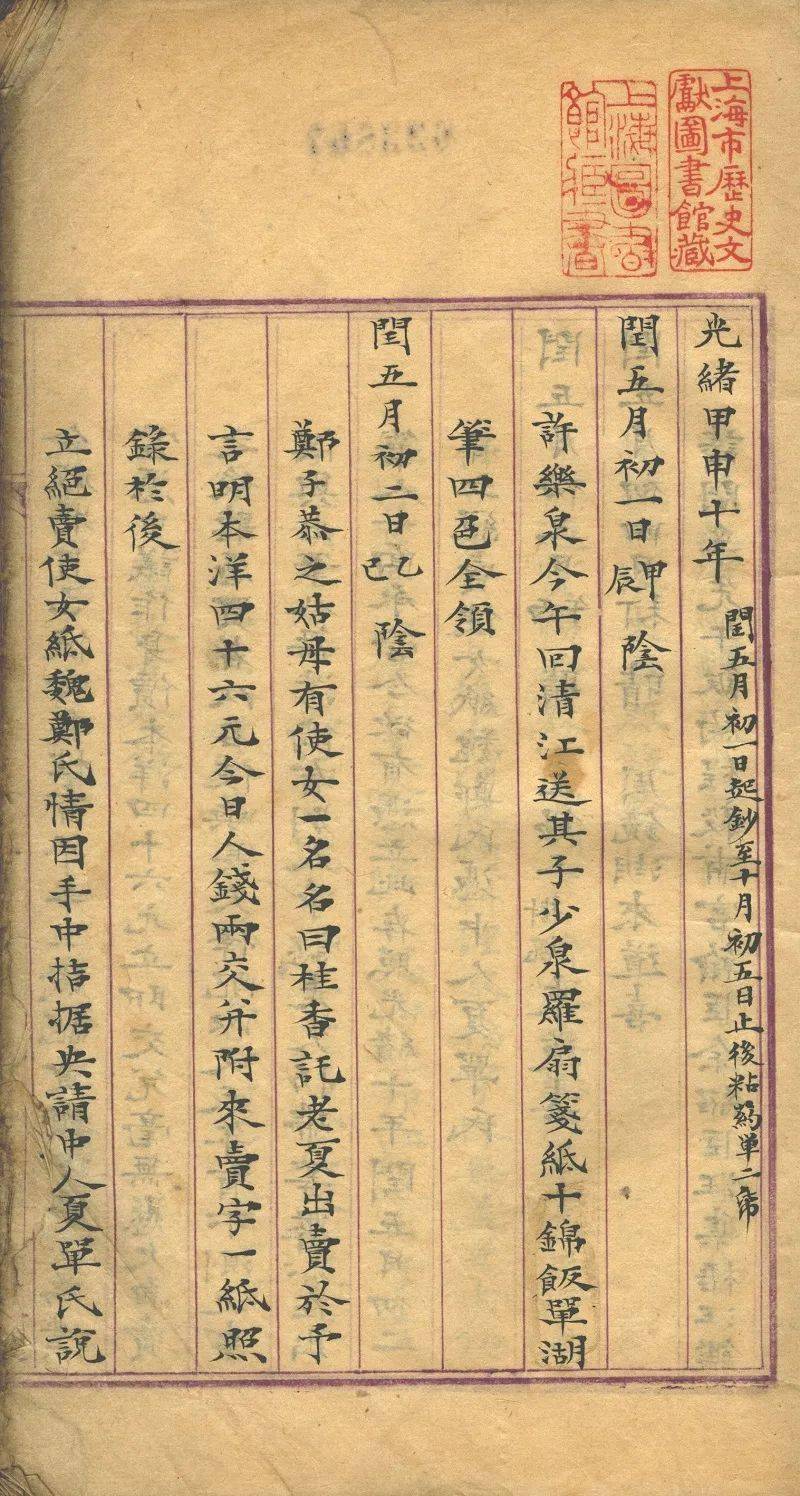 上海市歷史文
獻圖書館藏
上海圖書
館藏書
光緒甲申十年 閏五月初一日起鈔至十月初五日止後粘藥単二帋
閏五月初一日甲辰陰
許樂泉今午回清江送其子少泉羅扇箋紙十錦飯單湖
筆四色全領
閏五月初二日乙巳陰
鄭子恭之姑母有使女一名名曰桂香託老夏出賣於予
言明本洋四十六元今日人錢兩交并附來賣字一紙照
錄於後
立絕賣使女紙魏鄭氏情因手中拮据央請中人夏單氏說